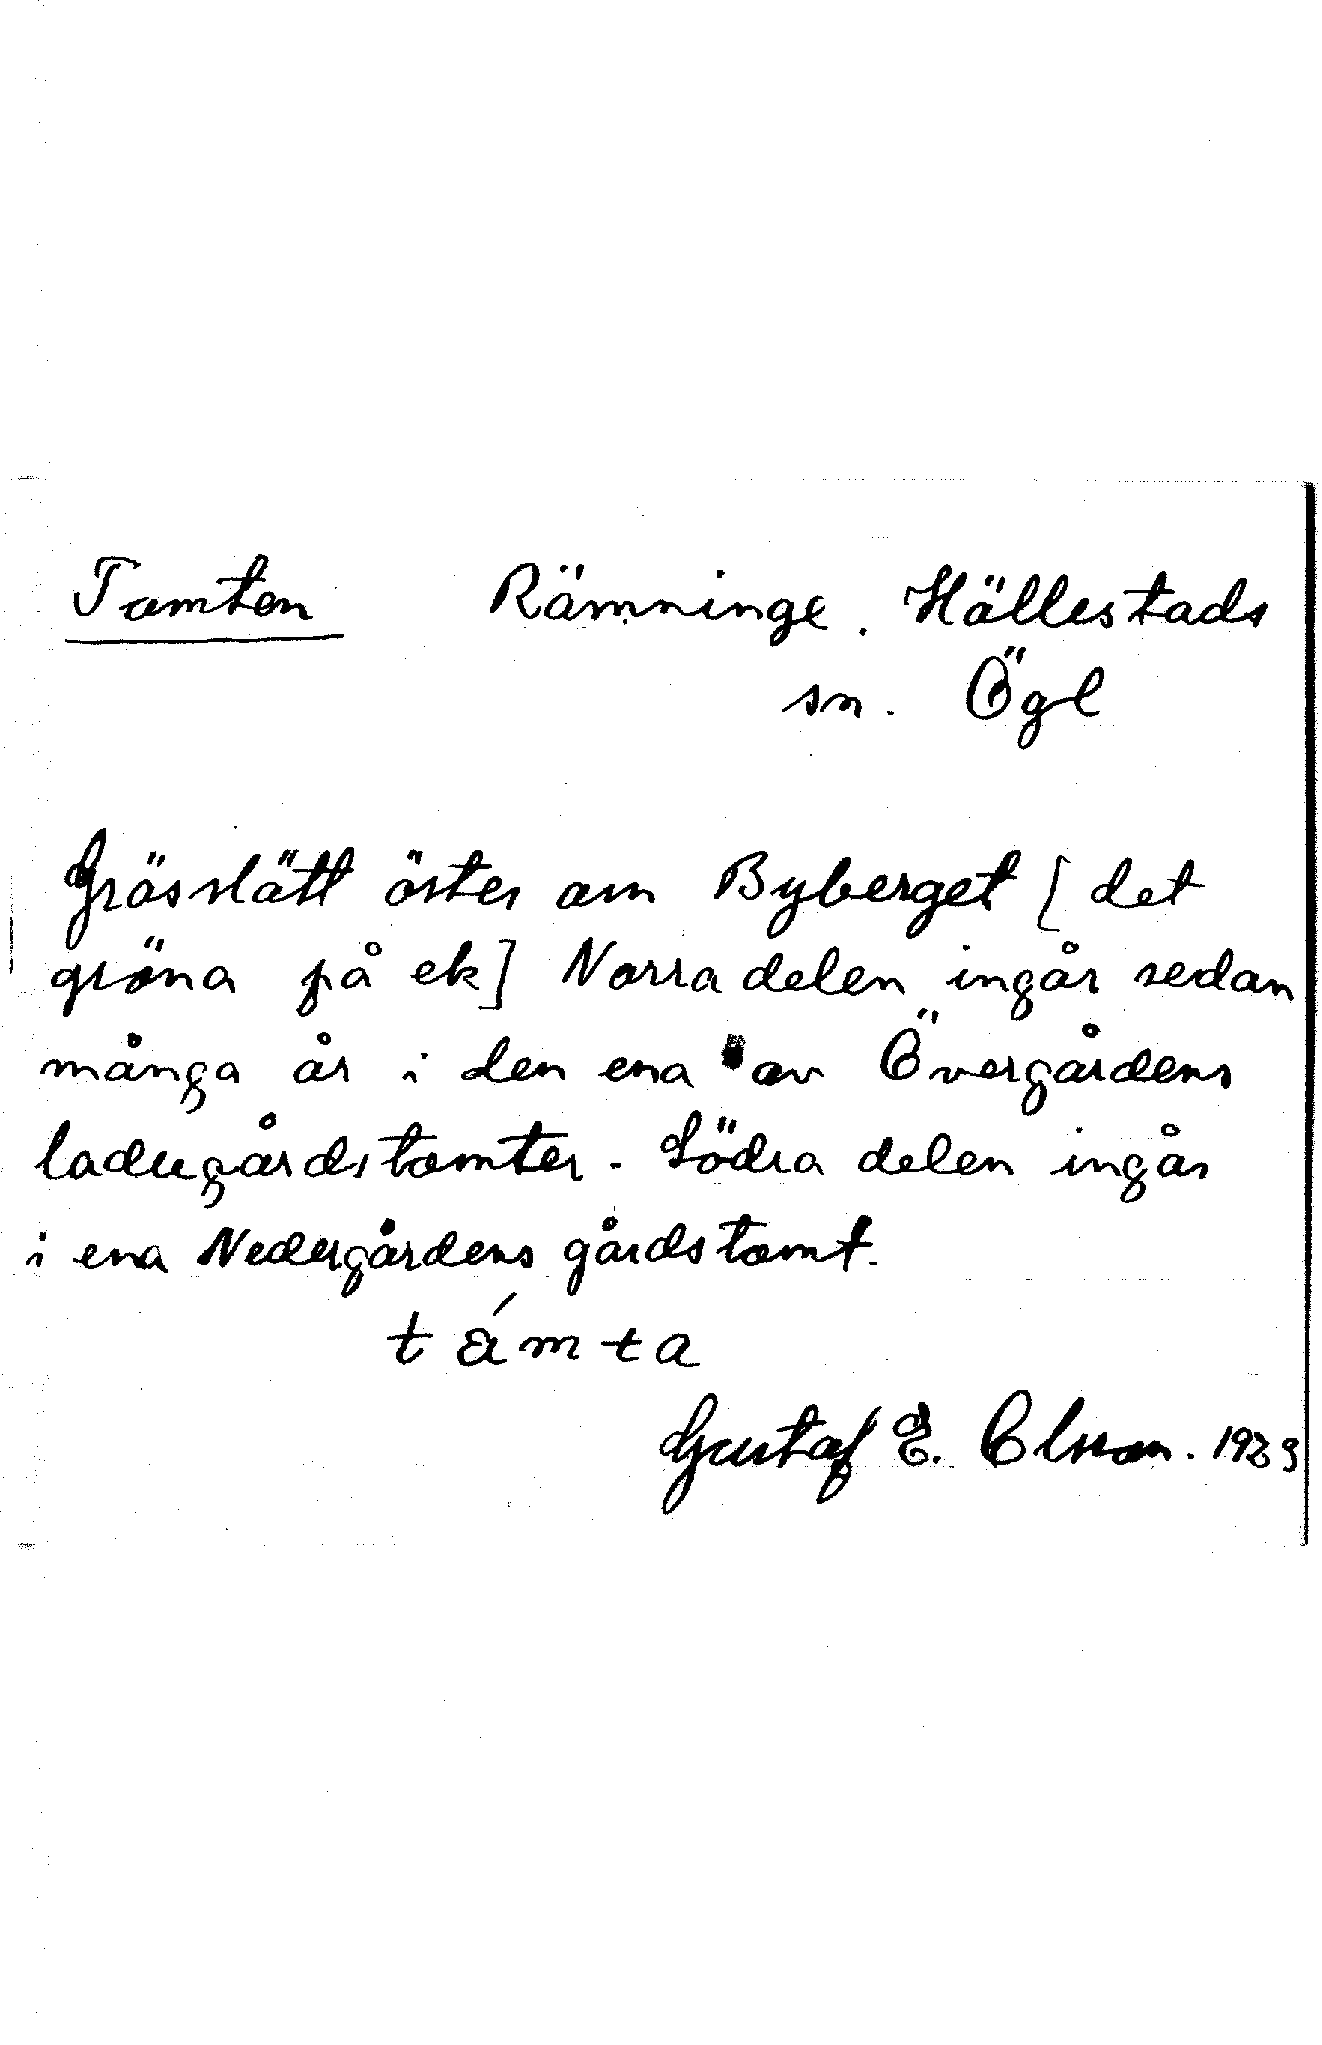 Tomten Rämninge. Hällestads
sn. Ögl
Grässlätt öster om Byberget [det
gröna på ek] Norra delen ingår sedan
många år i den ena av Övergårdens
ladugårdstomter. Södra delen ingår
i ena Nedergårdens gårdstomt.
támta
Gustaf E. Olsson. 1929